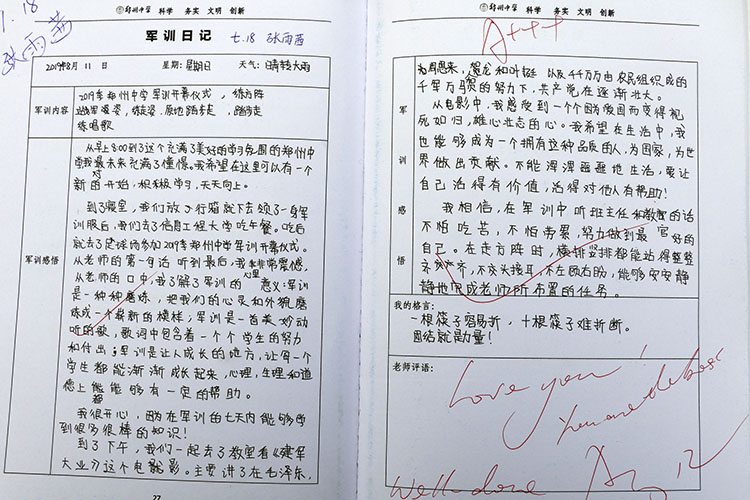 7.18
张雨茜
郑州中学 科学 务实 文明 创新
军训日记 七.18 张雨茜
2019年8月11日 星期:星期日 天气:晴转大雨
军训内容
2019年郑州中学军训开幕仪式,练方阵
练军姿,练走姿,原地踏步走,踏步走
练唱歌
军训感悟
从早上8:00到了这个充满了美好的学习氛围的郑州中
学我对未来充满了憧憬。我希望在这里可以有一个
新的开始,积极学习,天天向上。
到了寝室,我们放了行箱就下去领了一身军
训服后,我们去了信息工程大学吃午餐。吃后
就去了足球场参加2019年郑州中学军训开幕仪式。
从老师的第一句话听到最后,我非常震憾,
从老师的口中我了解了军训的心里意义:军训
是一种种磨炼,把我们的心灵和外貌磨
炼成一个最新的模样;军训是一首美妙动
听的歌,歌词中包含着一个个学生的努力
和付出;军训是让人成长的地方,让每一个
学生都能渐渐成长起来,心理,生理和道
德上都能能够有一定的帮助。
我很开心,因为在军训的七天内能够学
到很多很棒的知识!
到了下午,我们一起去了教室看《建军
大业》这个电影。主要讲了在毛泽东,
77
郑州中学 科学 务实 文明 创新
A+++
军训感悟
周恩来,贺龙和叶挺以及44万万由农民组织成的
千军万马的努力下,共产党在逐渐壮大。
从电影中,我感受到一个个因为爱国而变得视
死如归,雄心壮志的心。我希望在生活中,我
也能够成为一个拥有这种品质的人,为国家,为世
界做出贡献。不能浑浑噩噩地生活,要让
自己活得有价值,活得对他人有帮助!
我相信,在军训中听班主任和教官的话
不怕吃苦,不怕劳累,努力做到最好的
自己。在走方阵时,横排竖排都能站得整整
齐齐,不交头接耳,不左顾右盼,能够安安静
静地完成老师所布置的任务。
我的格言:
一根筷子容易折,十根筷子难折断。
团结就是力量!
老师评语:
Love you!
You are the best
Well-done